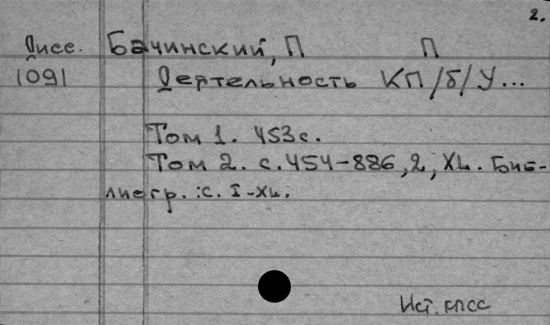 2.
Дисс. Бачинский, П П
1091 Деятельность КП/б/У...
Том 1. 453 с.
Том 2. с. 454-886, 2, XL. Биб-
лиогр.: с. I-XL.
Ист. КПСС